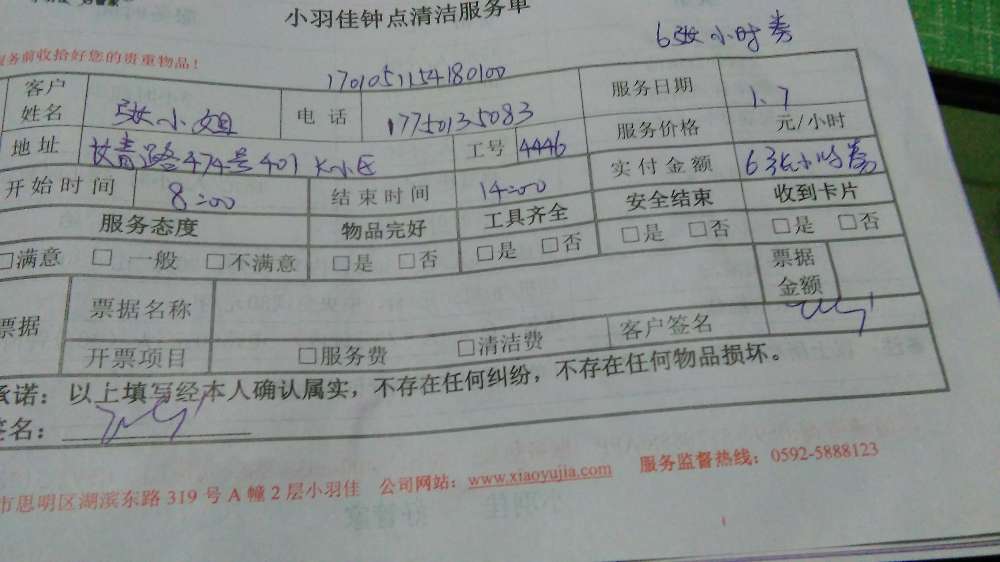 小羽佳钟点清洁服务单
6张小时券
服务前收拾好您的贵重物品！
1701051154180100
客户姓名 张小姐 电话 17750135083 服务日期 1.7
地址 青路474号401 工号 4446 服务价格 元/小时
开始时间 8:00 结束时间 14:00 实付金额 6张小时券
服务态度 物品完好 工具齐全 安全结束 收到卡片
□满意 □一般 □不满意 □是 □否 □是 □否 □是 □否 □是 □否
票据 票据名称 票据金额
开票项目 □服务费 □清洁费 客户签名
承诺：以上填写经本人确认属实，不存在任何纠纷，不存在任何物品损坏。
签名：
市思明区湖滨东路319号A幢2层小羽佳 公司网站：www.xiaoyujia.com 服务监督热线：0592-5888123